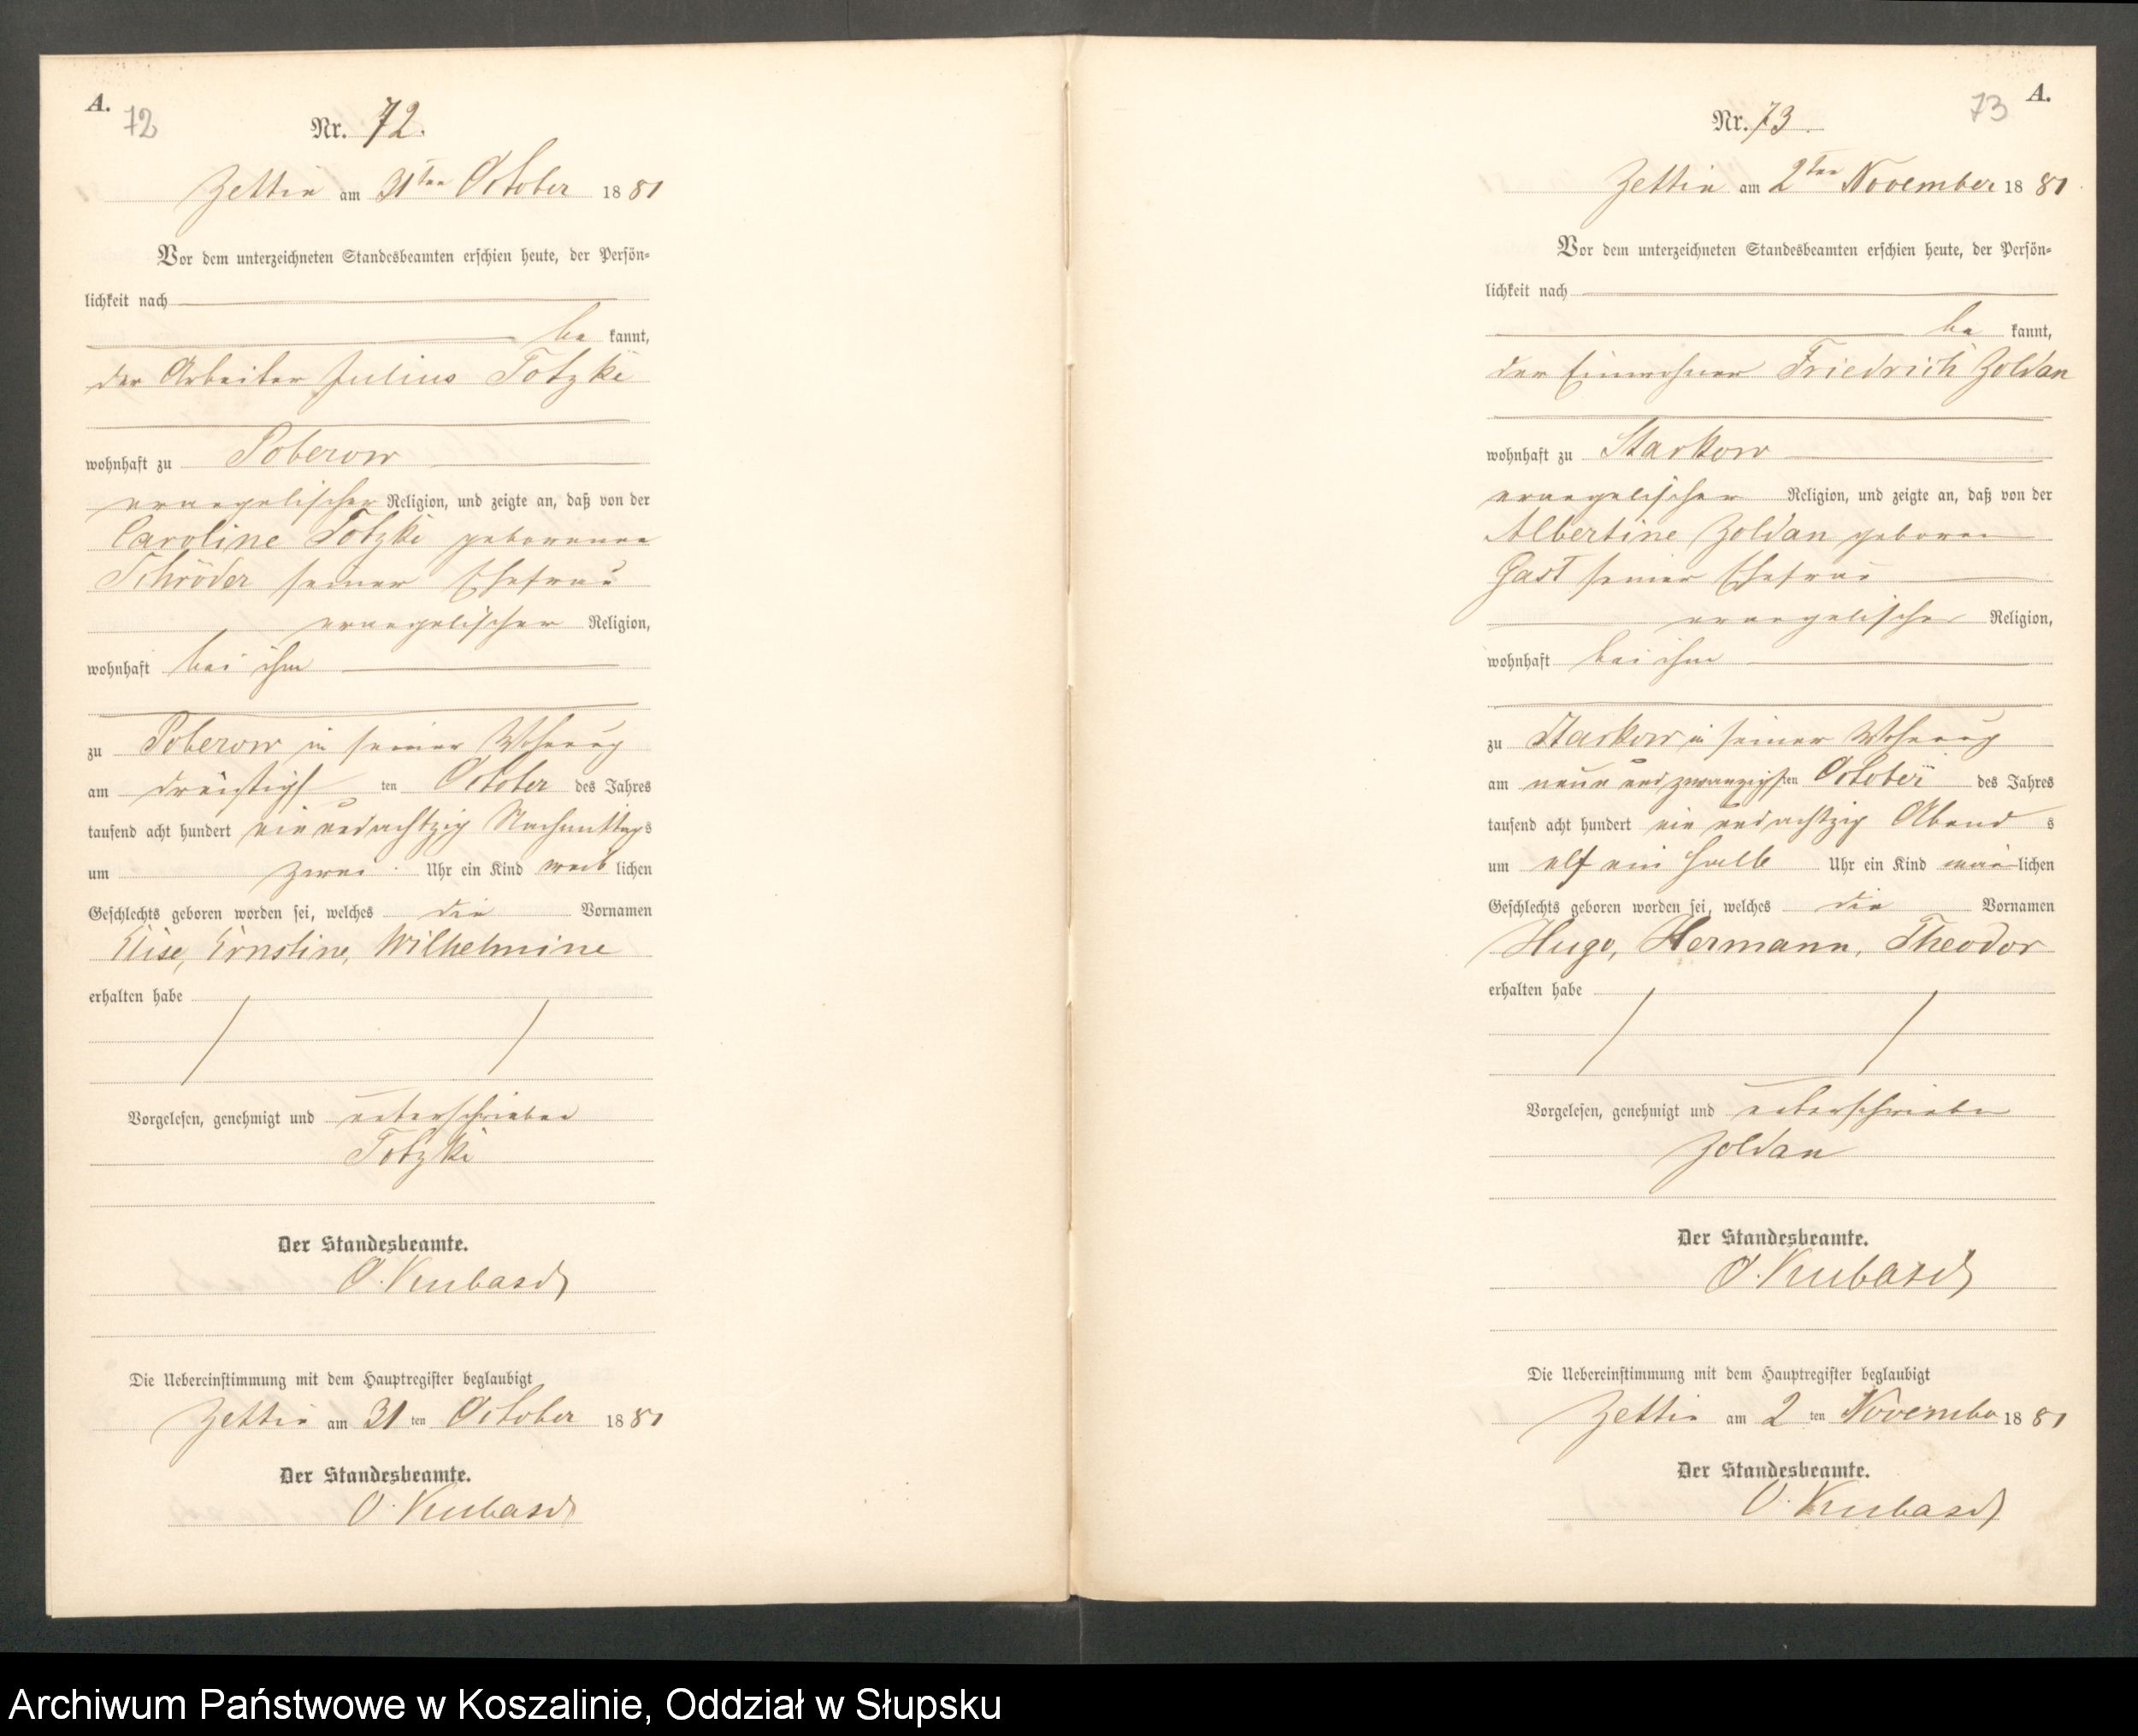 A.
72
Nr. 72.
Zettin am 31ten October 1881
Vor dem unterzeichneten Standesbeamten erschien heute, der Persön-
lichkeit nach
be kannt,
der Arbeiter Julius Totzke
wohnhaft zu Poberow
evangelischer Religion, und zeigte an, daß von der
Caroline Totzke geborenen
Schröder seiner Ehefrau
evangelischer Religion,
wohnhaft bei ihm
zu Poberow in seiner Wohnung
am dreißigs ten October des Jahres
tausend acht hundert ein und achtzig Nachmittags
um zwei Uhr ein Kind weib lichen
Geschlechts geboren worden sei, welches die Vornamen
Elise, Ernstine, Wilhelmine
erhalten habe
Vorgelesen, genehmigt und unterschrieben
Totzke
Der Standesbeamte.
O. Kubasch
Die Uebereinstimmung mit dem Hauptregister beglaubigt
Zettin am 31 ten October 1881
Der Standesbeamte.
O. Kubasch
73
A.
Nr. 73.
Zettin am 2ten November 1881
Vor dem unterzeichneten Standesbeamten erschien heute, der Persön-
lichkeit nach
be kannt,
der Einwohner Friedrich Zoldan
wohnhaft zu Starkow
evangelischer Religion, und zeigte an, daß von der
Albertine Zoldan geboren
Gast seiner Ehefrau
evangelischer Religion,
wohnhaft bei ihm
zu Starkow in seiner Wohnung
am neun und zwanzigs ten October des Jahres
tausend acht hundert ein und achtzig Abend s
um elf ein halb Uhr ein Kind män lichen
Geschlechts geboren worden sei, welches die Vornamen
Hugo, Hermann, Theodor
erhalten habe
Vorgelesen, genehmigt und unterschrieben
Zoldan
Der Standesbeamte.
O. Kubasch
Die Uebereinstimmung mit dem Hauptregister beglaubigt
Zettin am 2 ten November 1881
Der Standesbeamte.
O. Kubasch
Archiwum Państwowe w Koszalinie, Oddział w Słupsku